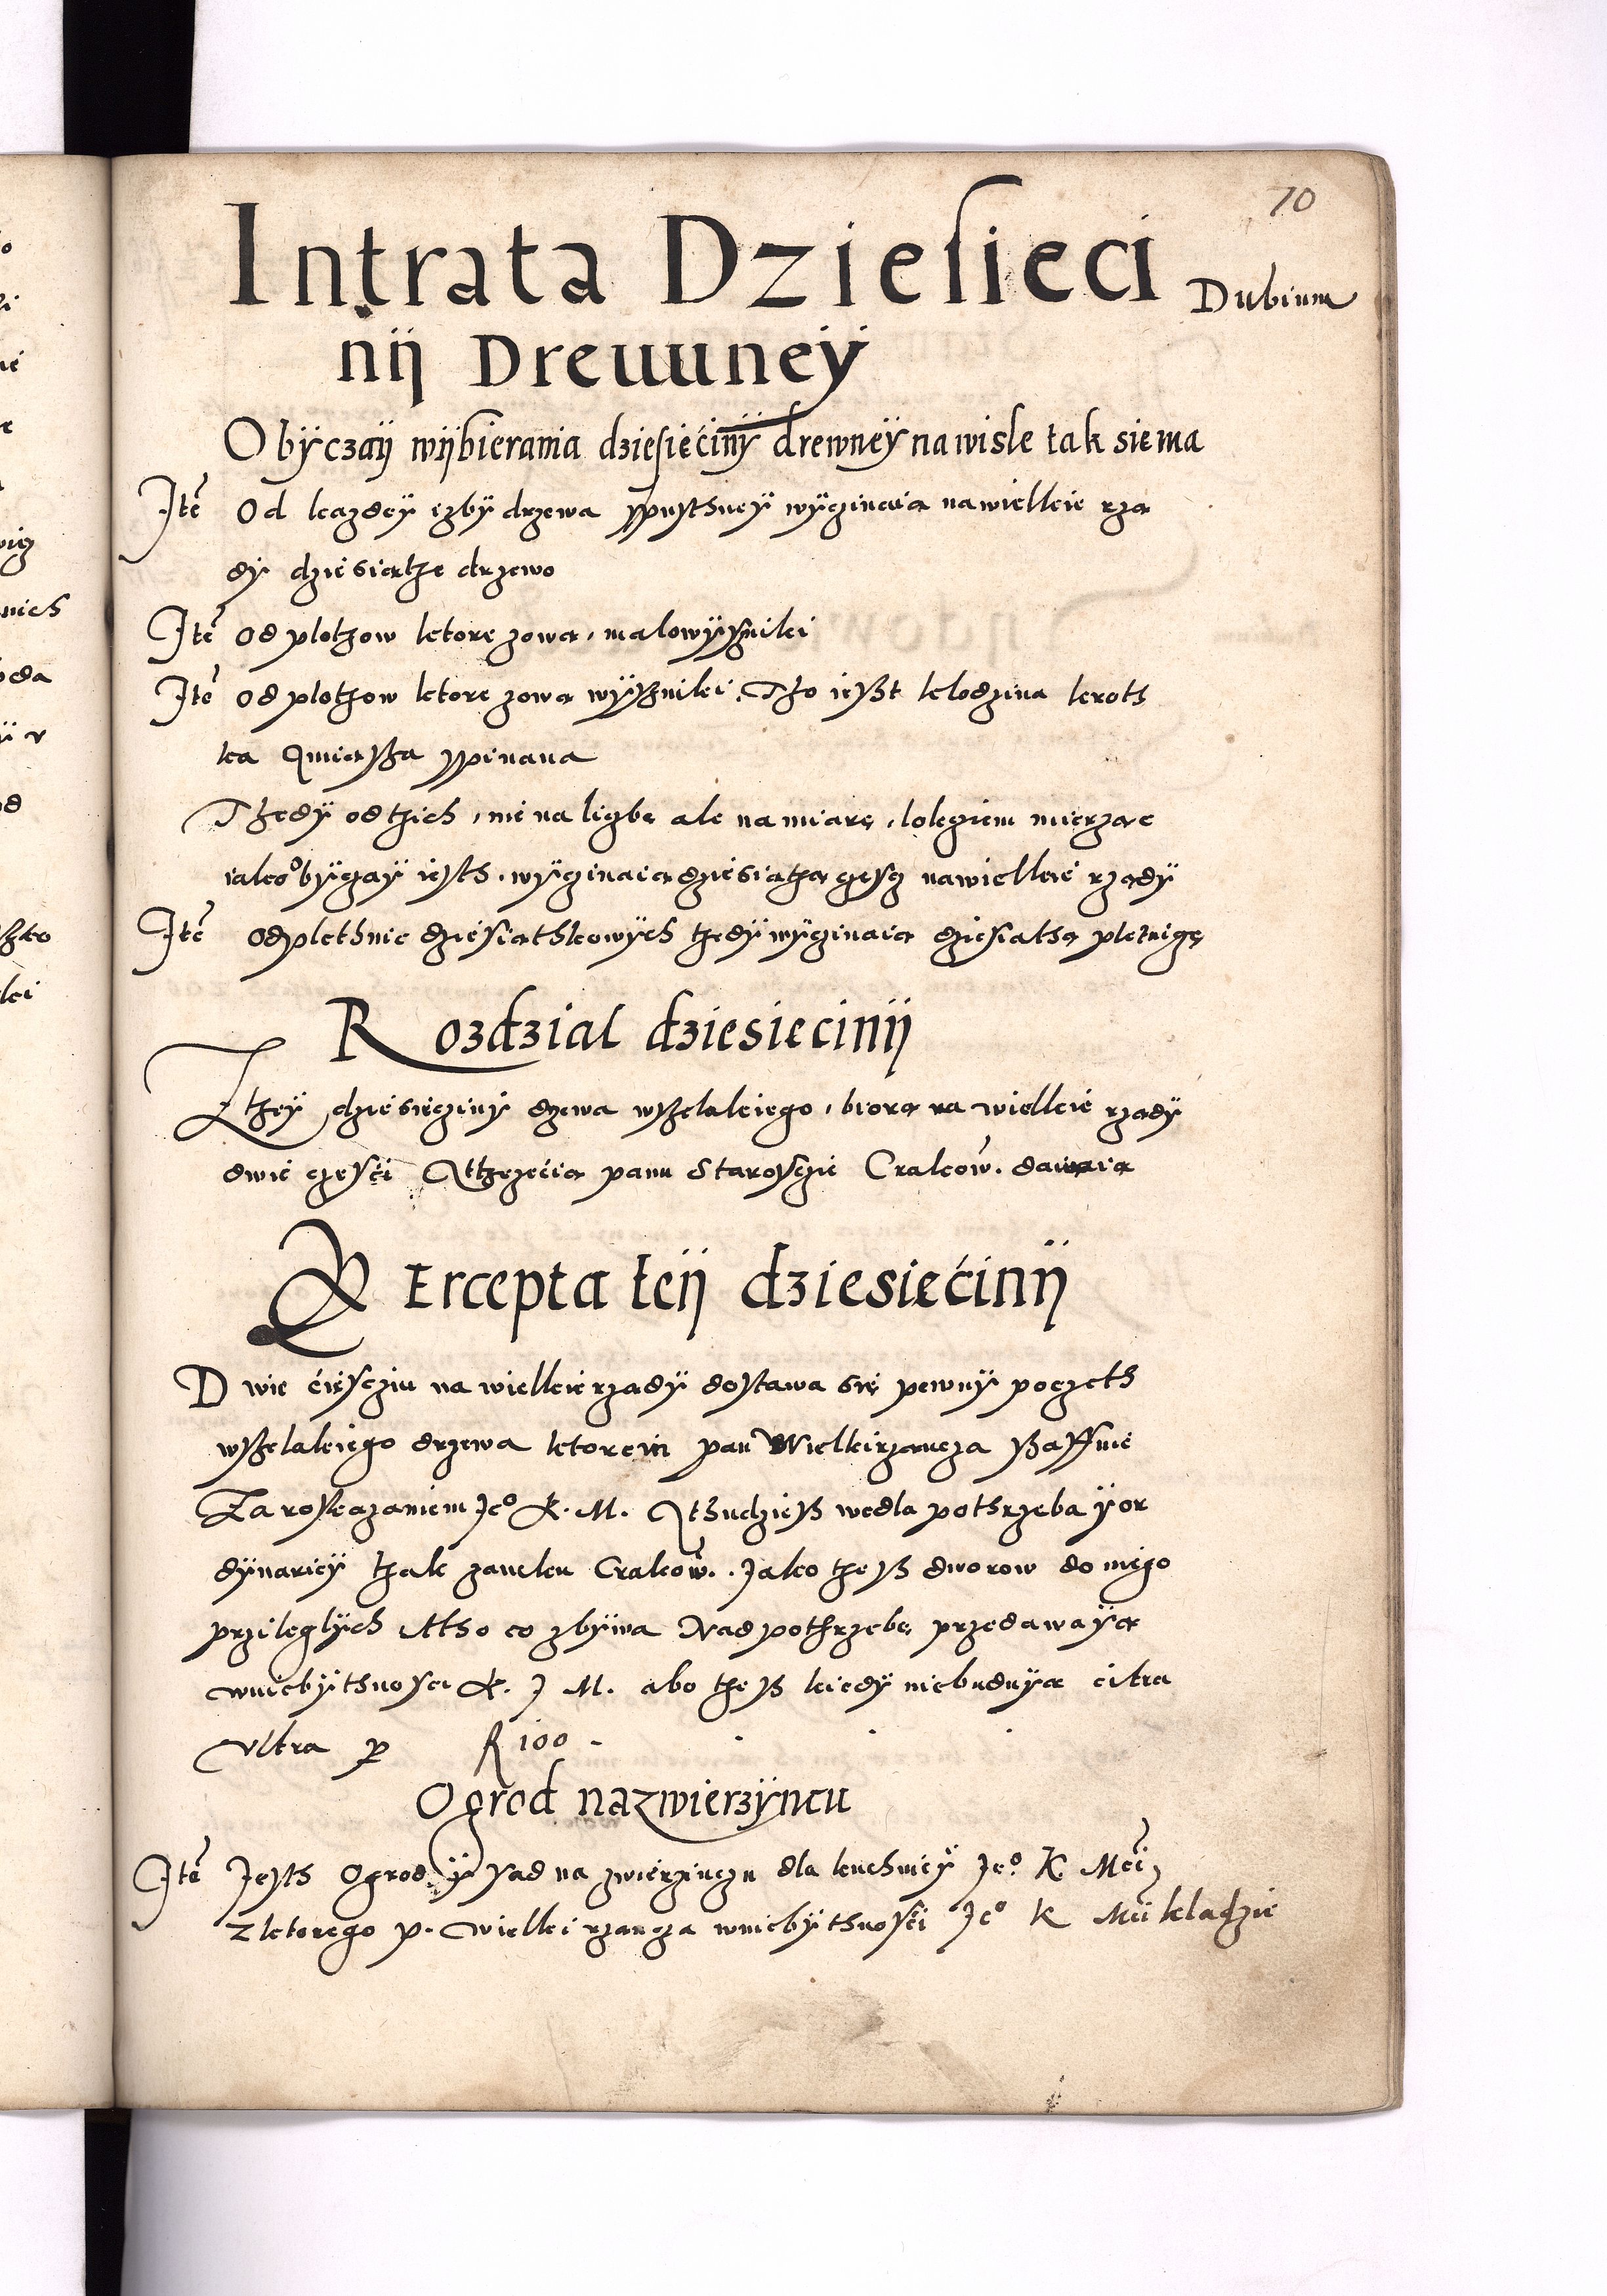 70
Intrata Dziesieci
Dubium
nij Drewney
Obyczaij wijbierania dziesieciny drewney na wisle tak sie ma
Ite Od kazdey izby drzewa ypusthney wyczinaia na wielkie rza
dy dziesiathe drzewo
Ite od plothow ktore zowa, malowyszniki
Ite od plothow ktore zowa wyszniki. Tho ieszt klodzina kroth
ka spinana
Thedy od thich, nie na liczbe ale na miare, lokciem mierzac
iako obyczay iesth, wyczinaia dziesiatha czesc na wielkie rządy
Ite od plethnic dziesiathkowych thedy wyczinaia dziesiatha pletnice
Rozdzial dziesiecinij
Z they dziesieciny drzewa wszelakiego, biora na wielkie rządy
dwie czesci A trzecia panu Staroscie Crakow. dawaia
Percepta teij dziesiecinij
Dwie czesciu na wielkie rządy dostawa sie pewny poczeth
wszelakiego drzewa ktorem pan Wielkirzancza szaffuie
Za roskazaniem Je° K. M. A thudziesz wedla pothrzeba y or
dynariey thak zamku Crakow. Jako thesz dworow do niego
przileglych A tho co zbywa Nad pothrzebe przedawaya
w niebythnosci K. J M. abo thesz kiedy niebuduya citra
vltra p R 100
Ogrod na zwierzyncu
Ite Jesth Ogrod y sad na zwierzinczu dla kuchniey Je° K Mci
z ktorego p. wielkirzancza w niebythnosci Je° K Mci kladzie